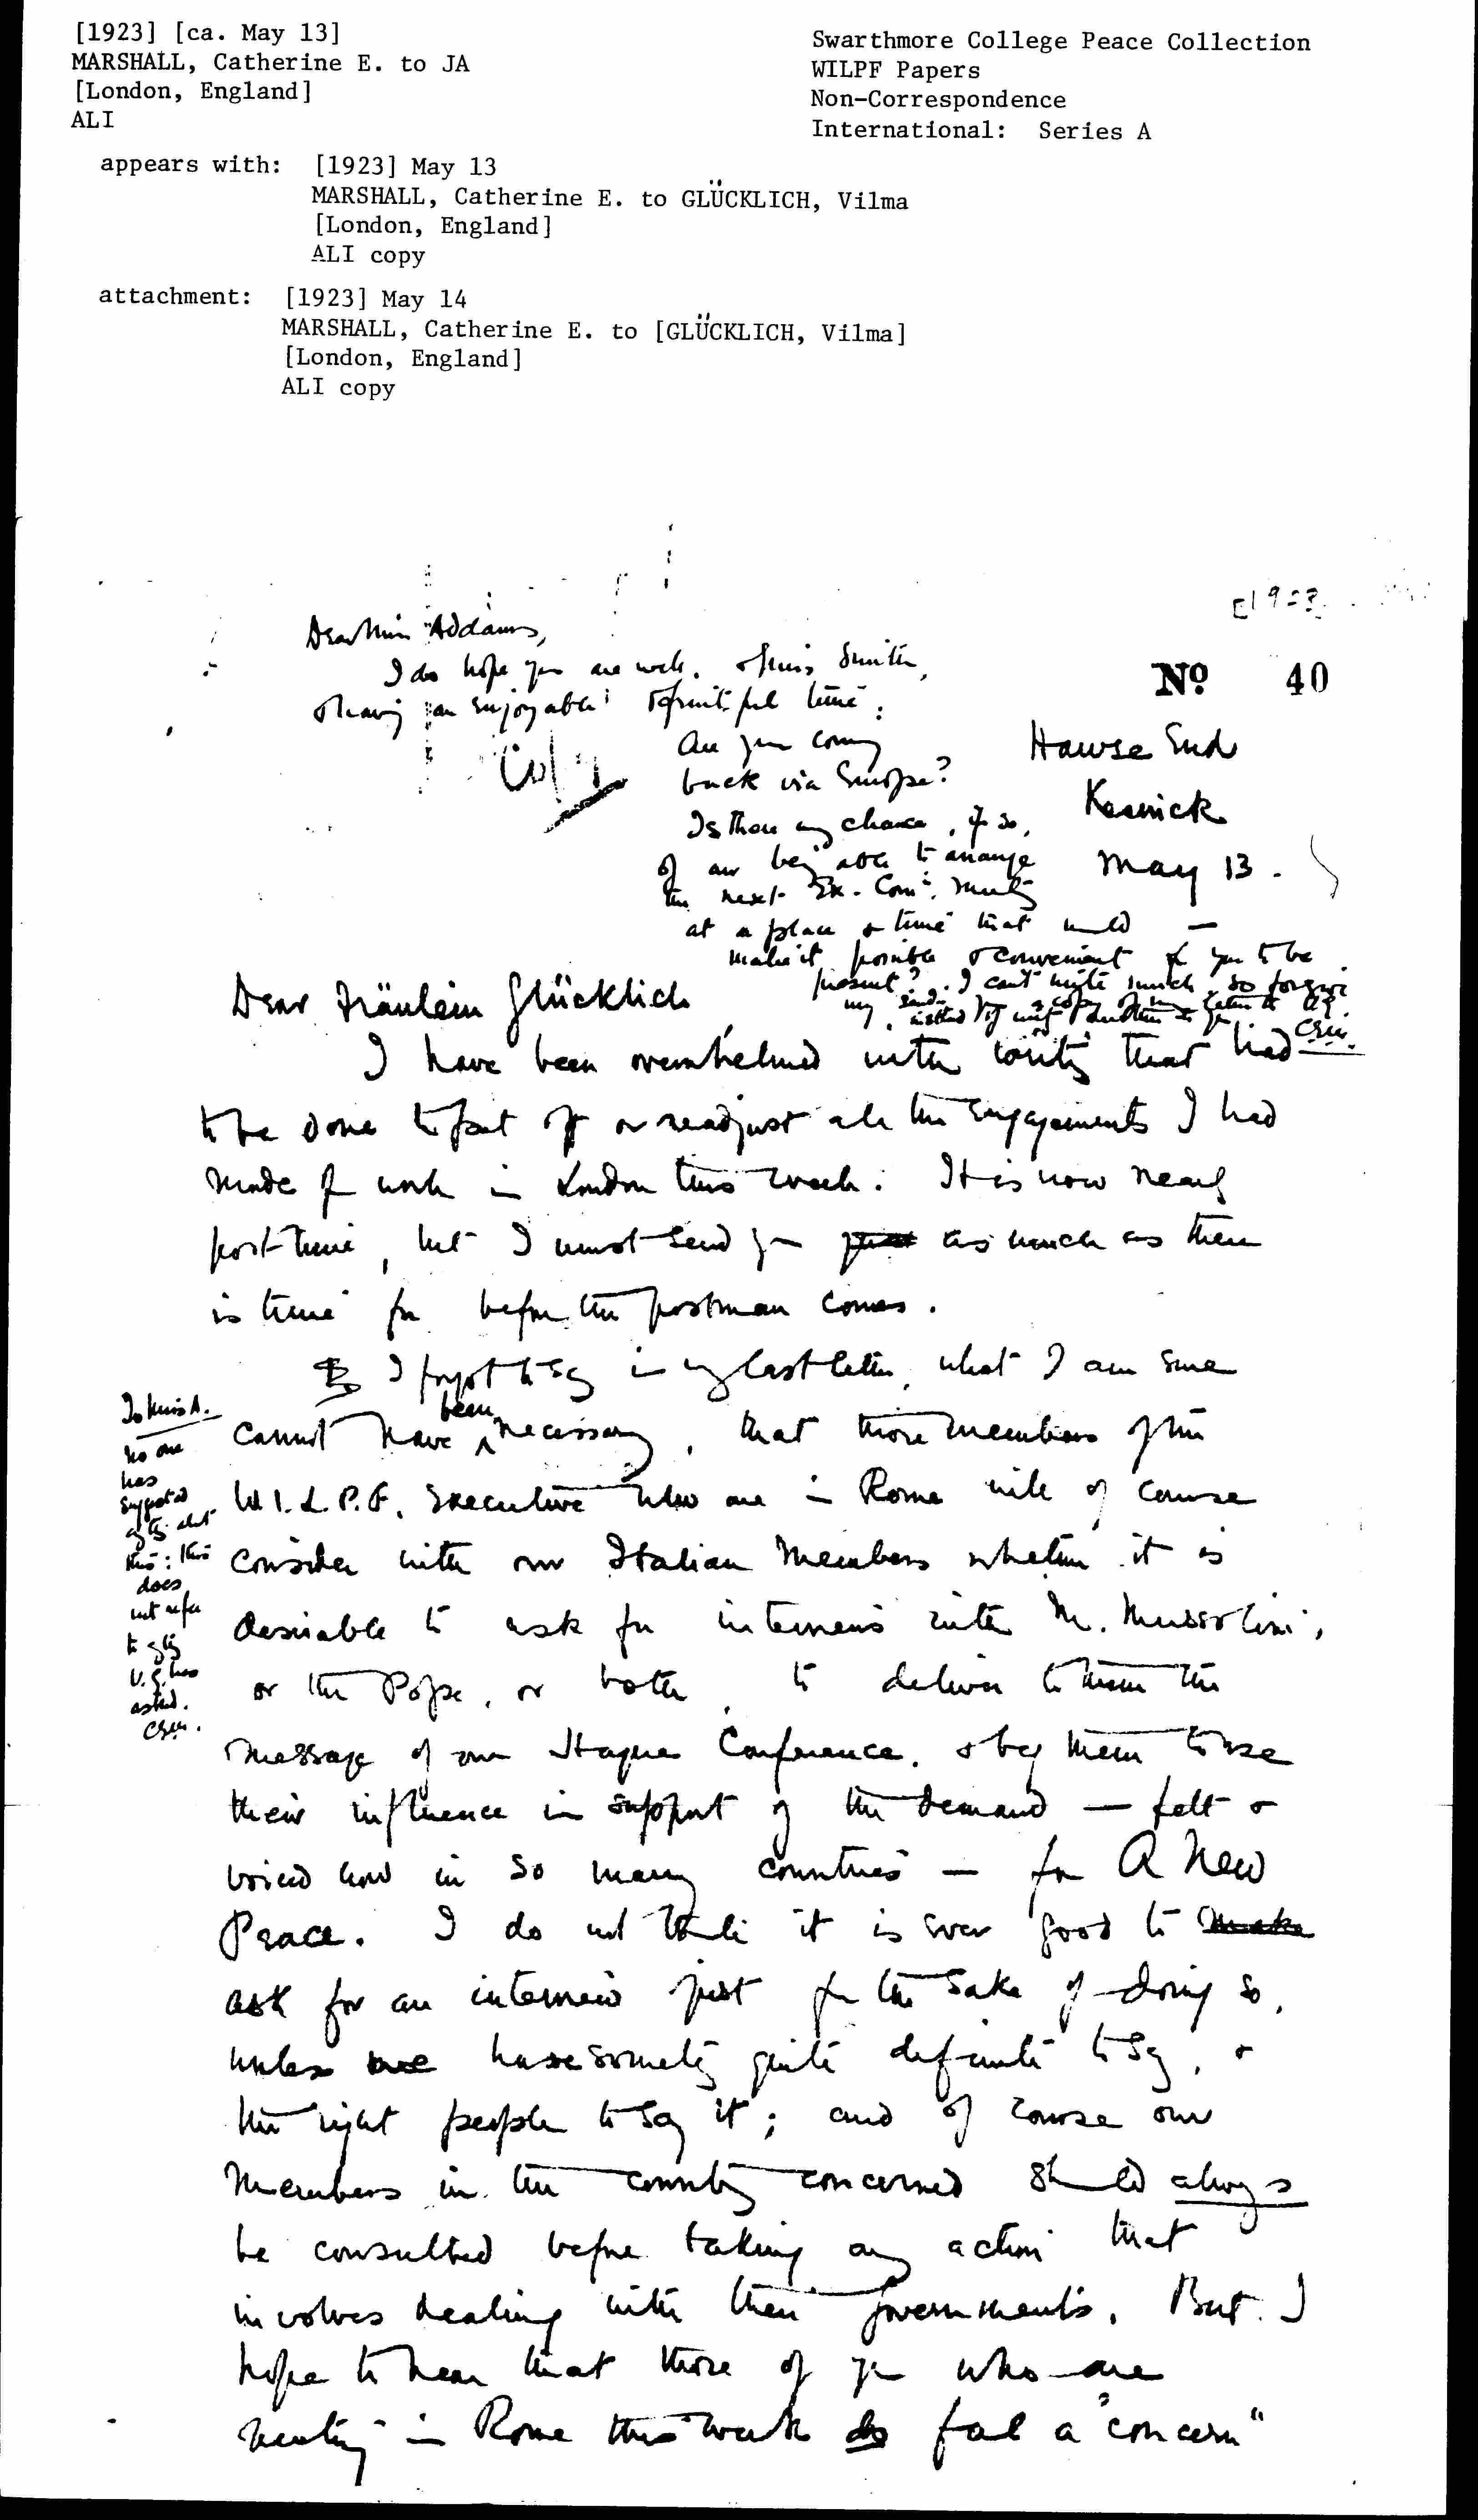 [1923] [ca. May 13]
MARSHALL, Catherine E. to JA
[London, England]
ALI
Swarthmore College Peace Collection
WILPF Papers
Non-Correspondence
International: Series A
appears with: [1923] May 13
MARSHALL, Catherine E. to GLÜCKLICH, Vilma
[London, England]
ALI copy
attachment: [1923] May 14
MARSHALL, Catherine E. to [GLÜCKLICH, Vilma]
[London, England]
ALI copy
[1923]
No 40
Dear Miss Addams,
I do hope you are well, & Miss Smith,
& having an enjoyable & fruitful time.
Are you coming
back via Europe?
Is there any chance, if so,
of our being able to arrange
the next Ex. Comtee. meeting
at a place & time that would
make it possible & convenient for you to be
present? I can't write much, so forgive
my sending a copy of my letter to V.G.
instead of writing another to you.
CEM.
Copy
Hawse End
Keswick
May 13.
Dear Fräulein Glücklich,
I have been overwhelmed with writing that had
to be done to put off or readjust all the engagements I had
made for work in London this week. It is now nearly
post-time, but I must send you just as much as there
is time for before the postman comes.
I forgot to say in my last letter, what I am sure
cannot have been necessary, that those members of the
W.I.L.P.F. Executive who are in Rome will of course
consider with our Italian Members whether it is
desirable to ask for interviews with M. Mussolini,
or the Pope, or both, to deliver to them the
message of our Hague Conference, & beg them to use
their influence in support of the demand — felt &
voiced now in so many countries — for A New
Peace. I do not think it is ever good to make
ask for an interview just for the sake of doing so,
unless we have something quite definite to say, &
the right people to say it; and of course our
Members in the country concerned should always
be consulted before taking any action that
involves dealing with their governments. But I
hope to hear that those of you who are
meeting in Rome this week do feel a "concern"
To Miss A.
No one
has
suggested
anything abt
this: this
does
not refer
to anything
V.G. has
asked.
CEM.